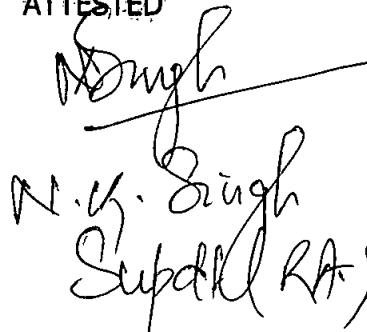 ATTESTED
NSingh
N.K. Singh
Supdt (RA-